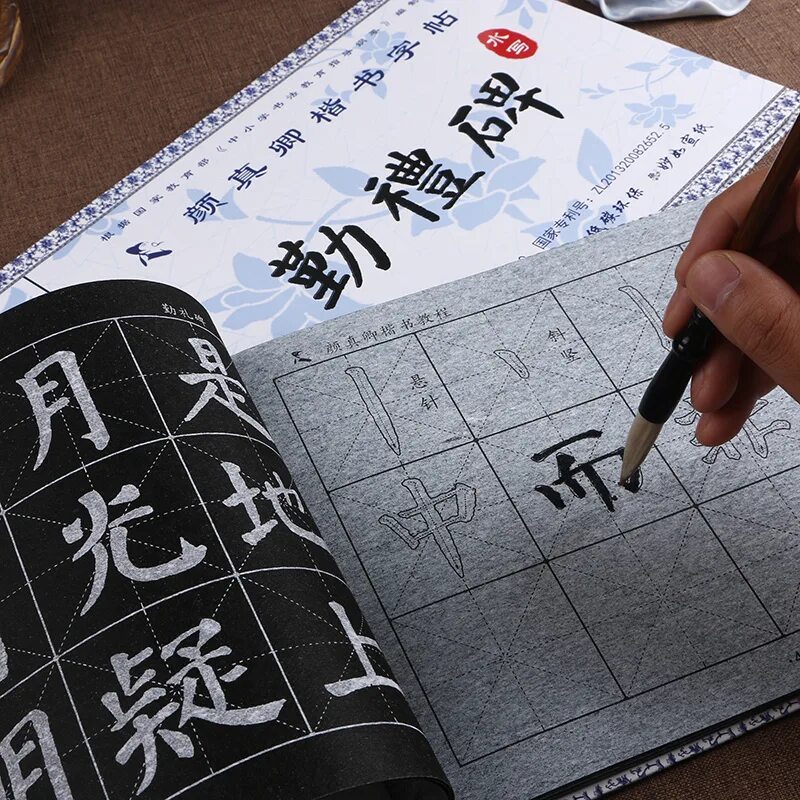 根据国家教育部《中小学书法教育指导纲要》编制
颜真卿楷书字帖
水写
勤禮碑
国家专利号：ZL201320082652.5
低碳环保
妙如宣纸
勤礼碑
月是
光地
疑上
明
颜真卿楷书教程
悬针
斜竖
中